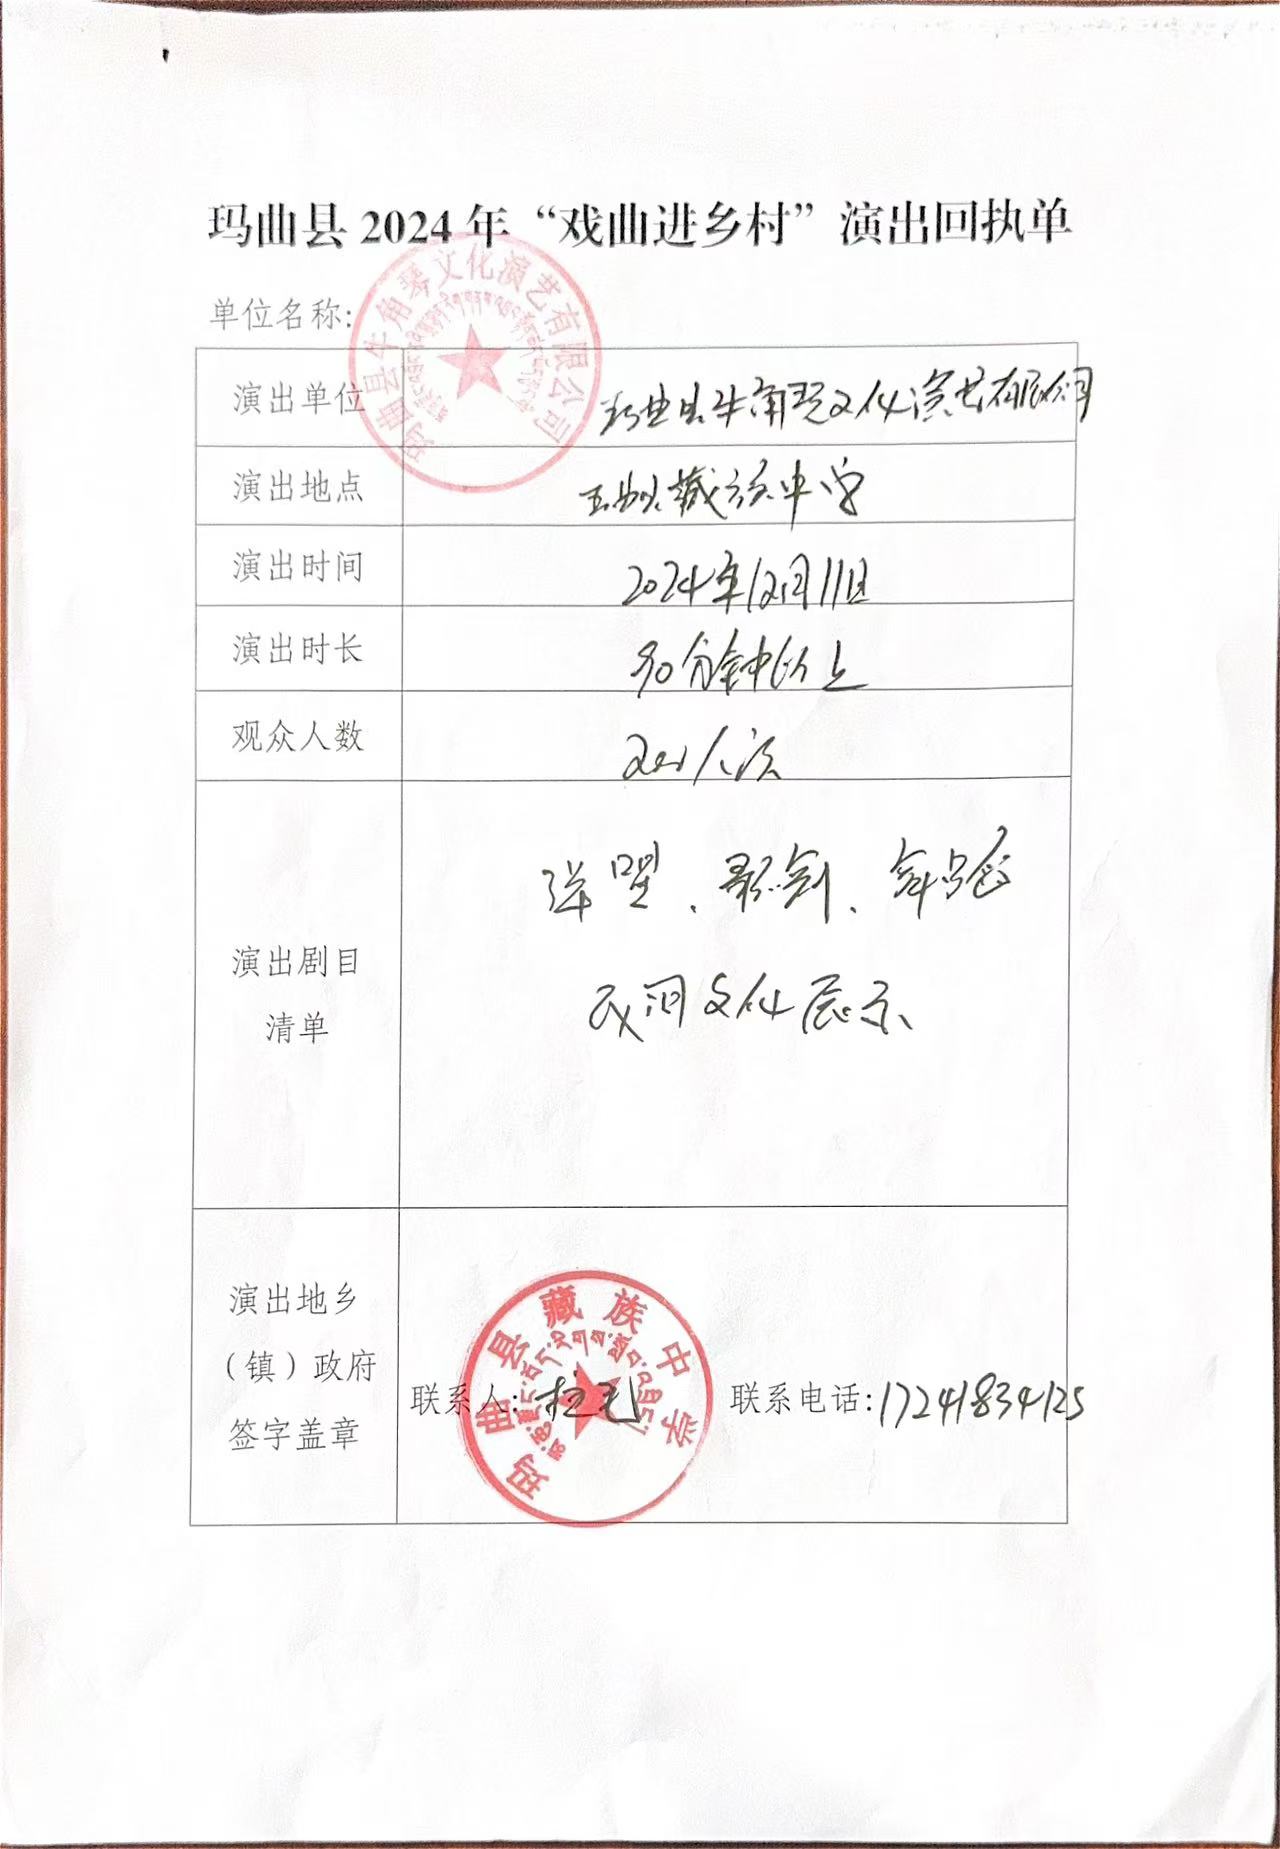 玛曲县 2024 年“戏曲进乡村”演出回执单
单位名称:
玛曲县牛角琴文化演艺有限公司
演出单位
玛曲县牛角琴文化演艺有限公司
演出地点
玛曲县藏族中学
演出时间
2024年12月11日
演出时长
90分钟以上
观众人数
人次
演出剧目
清单
弹唱、歌剧、
民间文化展示
演出地乡
（镇）政府
签字盖章
联系人:
玛曲县藏族中学
联系电话: 17241834125